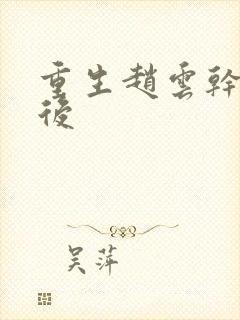 重生趙雲幹
後
吴萍